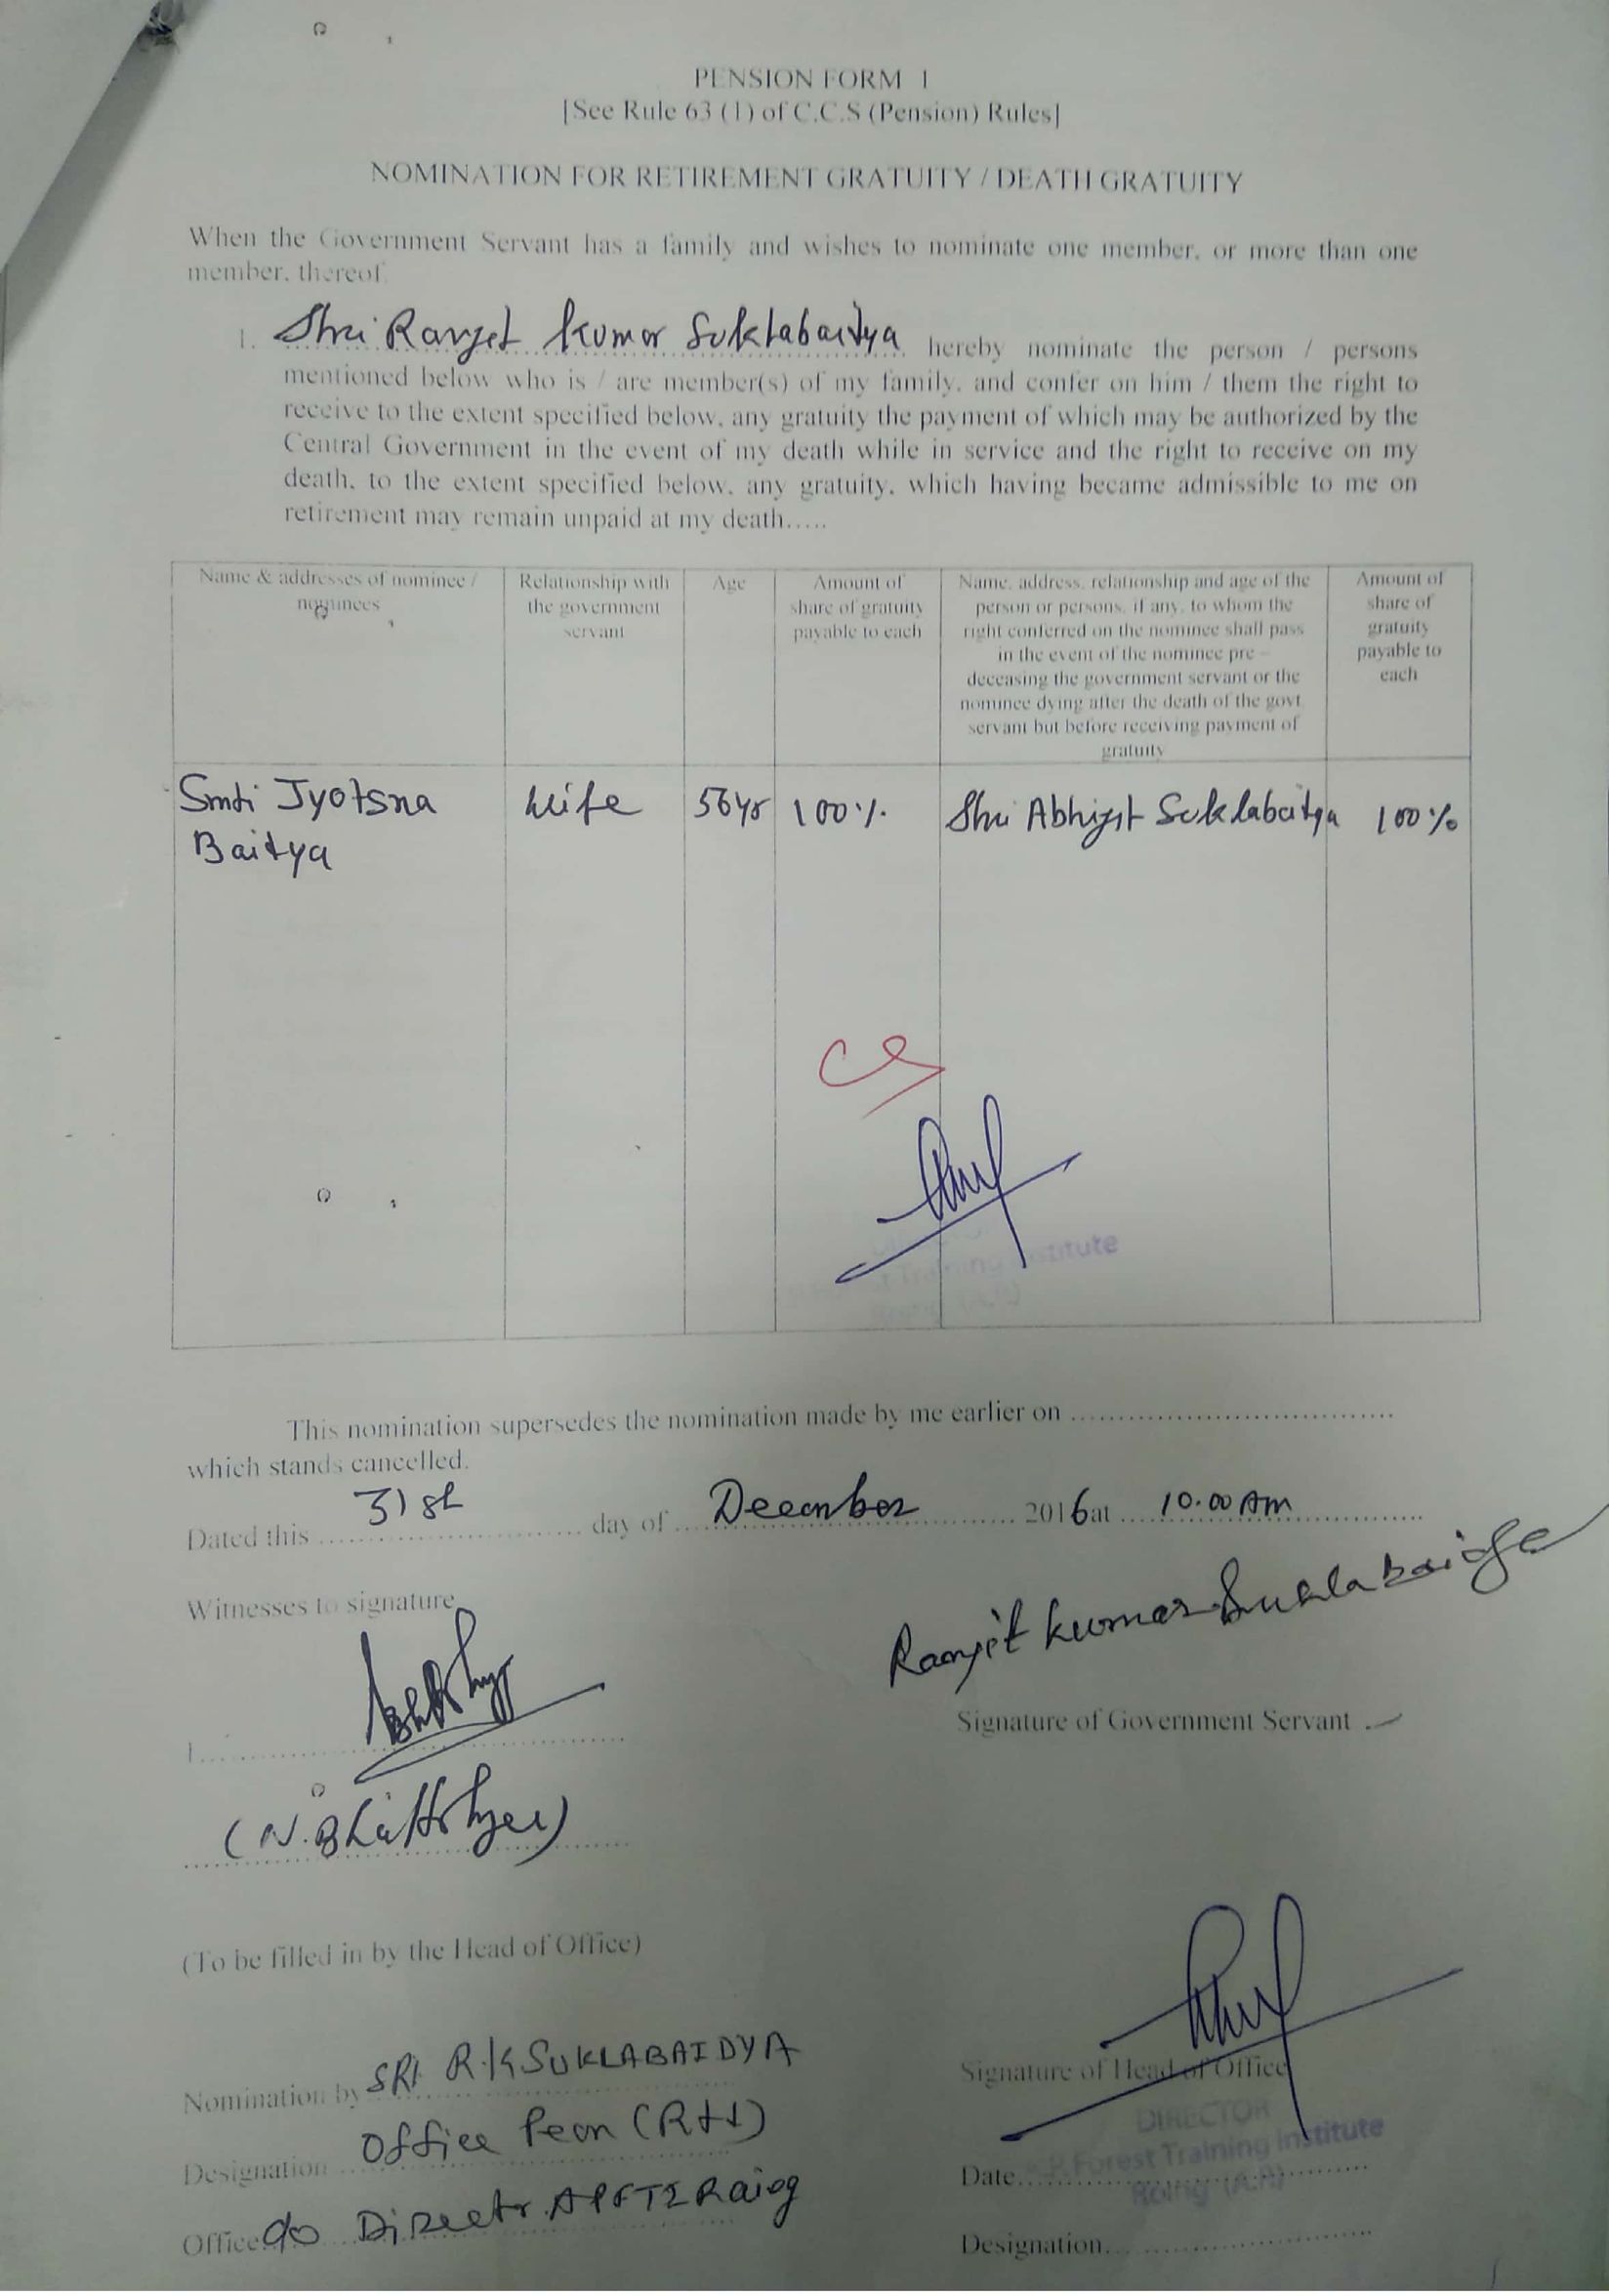 PENSION FORM 1
[See Rule 63 (1) of C.C.S (Pension) Rules]
NOMINATION FOR RETIREMENT GRATUITY / DEATH GRATUITY
When the Government Servant has a family and wishes to nominate one member, or more than one
member, thereof.
1. Shri Ranjet Kumar Suklabaitya hereby nominate the person / persons
mentioned below who is / are member(s) of my family, and confer on him / them the right to
receive to the extent specified below, any gratuity the payment of which may be authorized by the
Central Government in the event of my death while in service and the right to receive on my
death, to the extent specified below, any gratuity, which having became admissible to me on
retirement may remain unpaid at my death.....
Name & addresses of nominee /
nominees
Relationship with
the government
servant
Age
Amount of
share of gratuity
payable to each
Name, address, relationship and age of the
person or persons, if any, to whom the
right conferred on the nominee shall pass
in the event of the nominee pre –
deceasing the government servant or the
nominee dying after the death of the govt.
servant but before receiving payment of
gratuity
Amount of
share of
gratuity
payable to
each
Smti Jyotsna
Baitya
Wife
56yr
100%
Shri Abhijit Suklabaitya
100%
Training Institute
This nomination supersedes the nomination made by me earlier on ....................................
which stands cancelled.
Dated this 31st day of December 2016 at 10.00 AM
Witnesses to signature
Ranjit Kumar Suklabaidya
Signature of Government Servant
1.
(N. Bhattarjee)
(To be filled in by the Head of Office)
Nomination by SRI R.K SUKLABAIDYA
Designation Office Peon (Rtd)
Office o/o Director APFTI Roing
Signature of Head of Office
DIRECTOR
Forest Training Institute
Roing (A.P)
Date
Designation